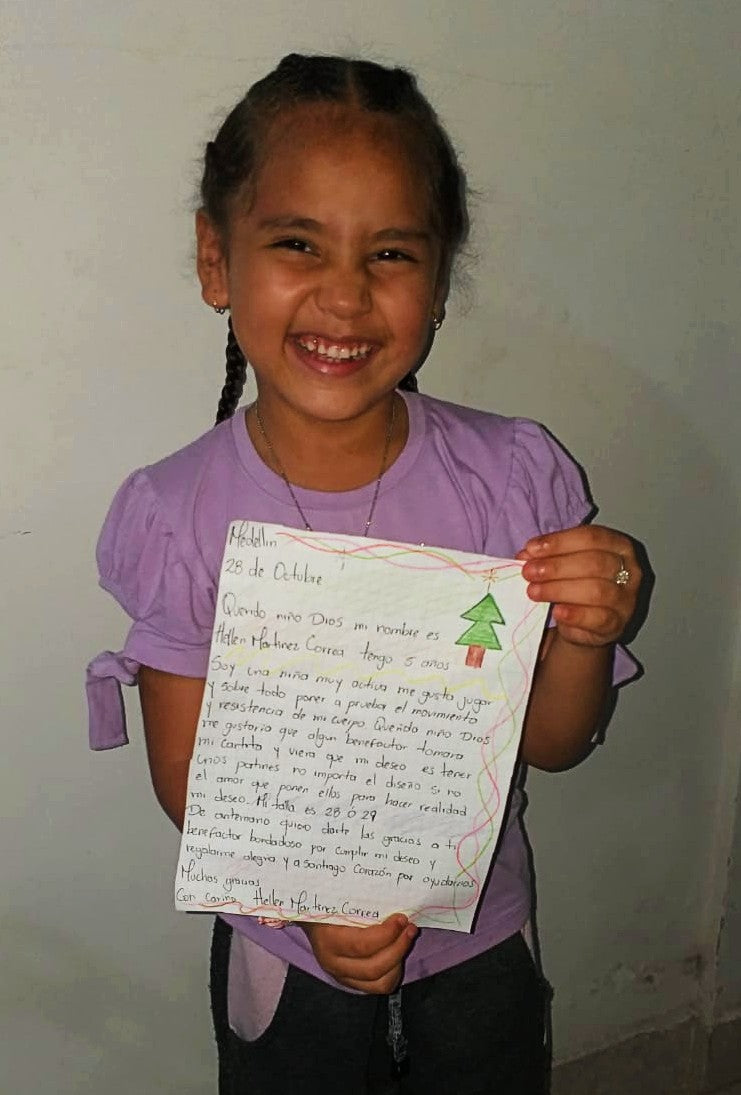 Medellin
28 de Octubre
Querido niño Dios mi nombre es
Hellen Martinez Correa tengo 5 años
Soy una niña muy activa me gusta jugar
y sobre todo poner a prueba el movimiento
y resistencia de mi cuerpo. Querido niño Dios
me gustaria que algun benefactor tomara
mi cartita y viera que mi deseo es tener
unos patines no importa el diseño si no
el amor que ponen ellos para hacer realidad
mi deseo. Mi talla es 28 ó 29
De antemano quiero darte las gracias a ti
benefactor bondadoso por cumplir mi deseo y
regalarme alegria y a Santiago Corazón por ayudarnos
Muchas gracias
Con cariño Hellen Martinez Correa